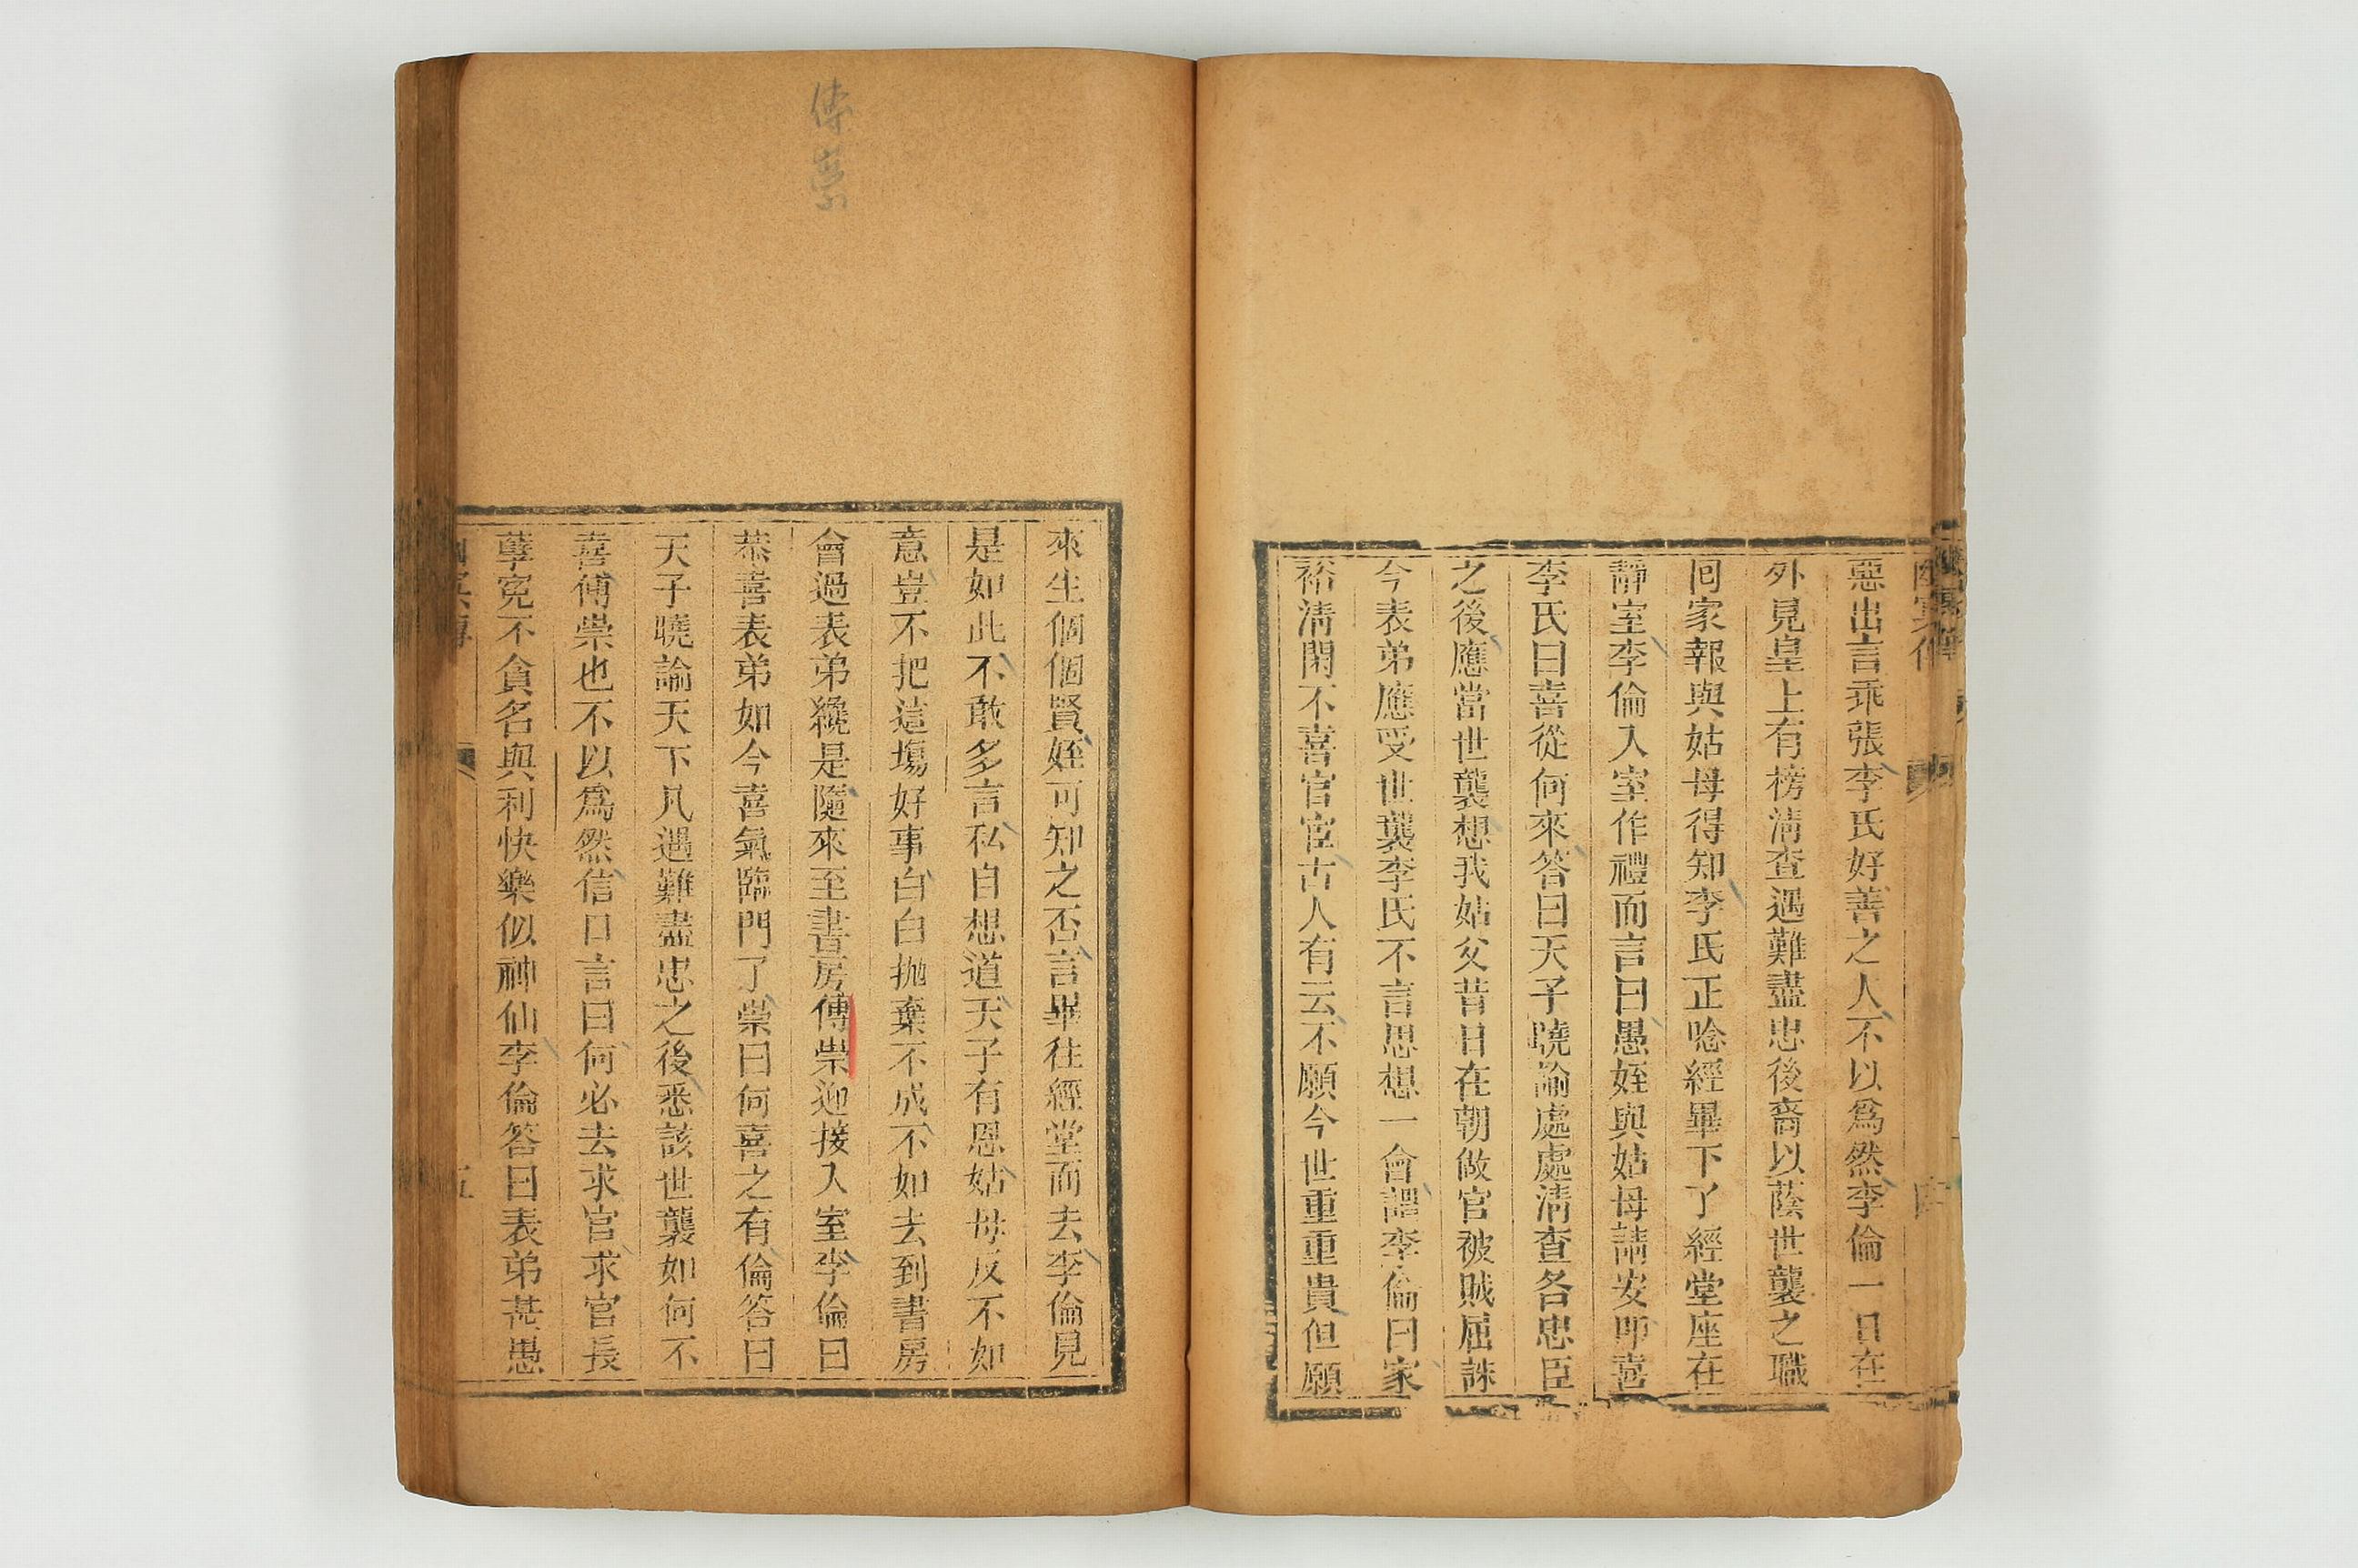 惡出言乖張李氏好善之人不以爲然李倫一日在
外見皇上有榜清查遇難盡忠後裔以蔭世襲之職
囘家報與姑母得知李氏正唸經畢下了經堂座在
靜室李倫入室作禮而言曰愚姪與姑母請安卽喜
李氏曰喜從何來答曰天子曉諭處處清查各忠臣
之後應當世襲想我姑父昔日在朝做官被賊屈誅
今表弟應受世襲李氏不言思想一會謂李倫曰家
裕清閑不喜官宦古人有云不願今世重重貴但願
傅崇
來生個個賢姪可知之否言畢往經堂而去李倫見
是如此不敢多言私自想道天子有恩姑母反不如
意豈不把這塲好事白白抛棄不成不如去到書房
會過表弟纔是隨來至書房傅崇迎接入室李倫曰
恭喜表弟如今喜氣臨門了崇曰何喜之有倫答曰
天子曉諭天下凡遇難盡忠之後悉該世襲如何不
喜傅崇也不以爲然信口言曰何必去求官求官長
孽寃不貪名與利快樂似神仙李倫答曰表弟甚愚
五